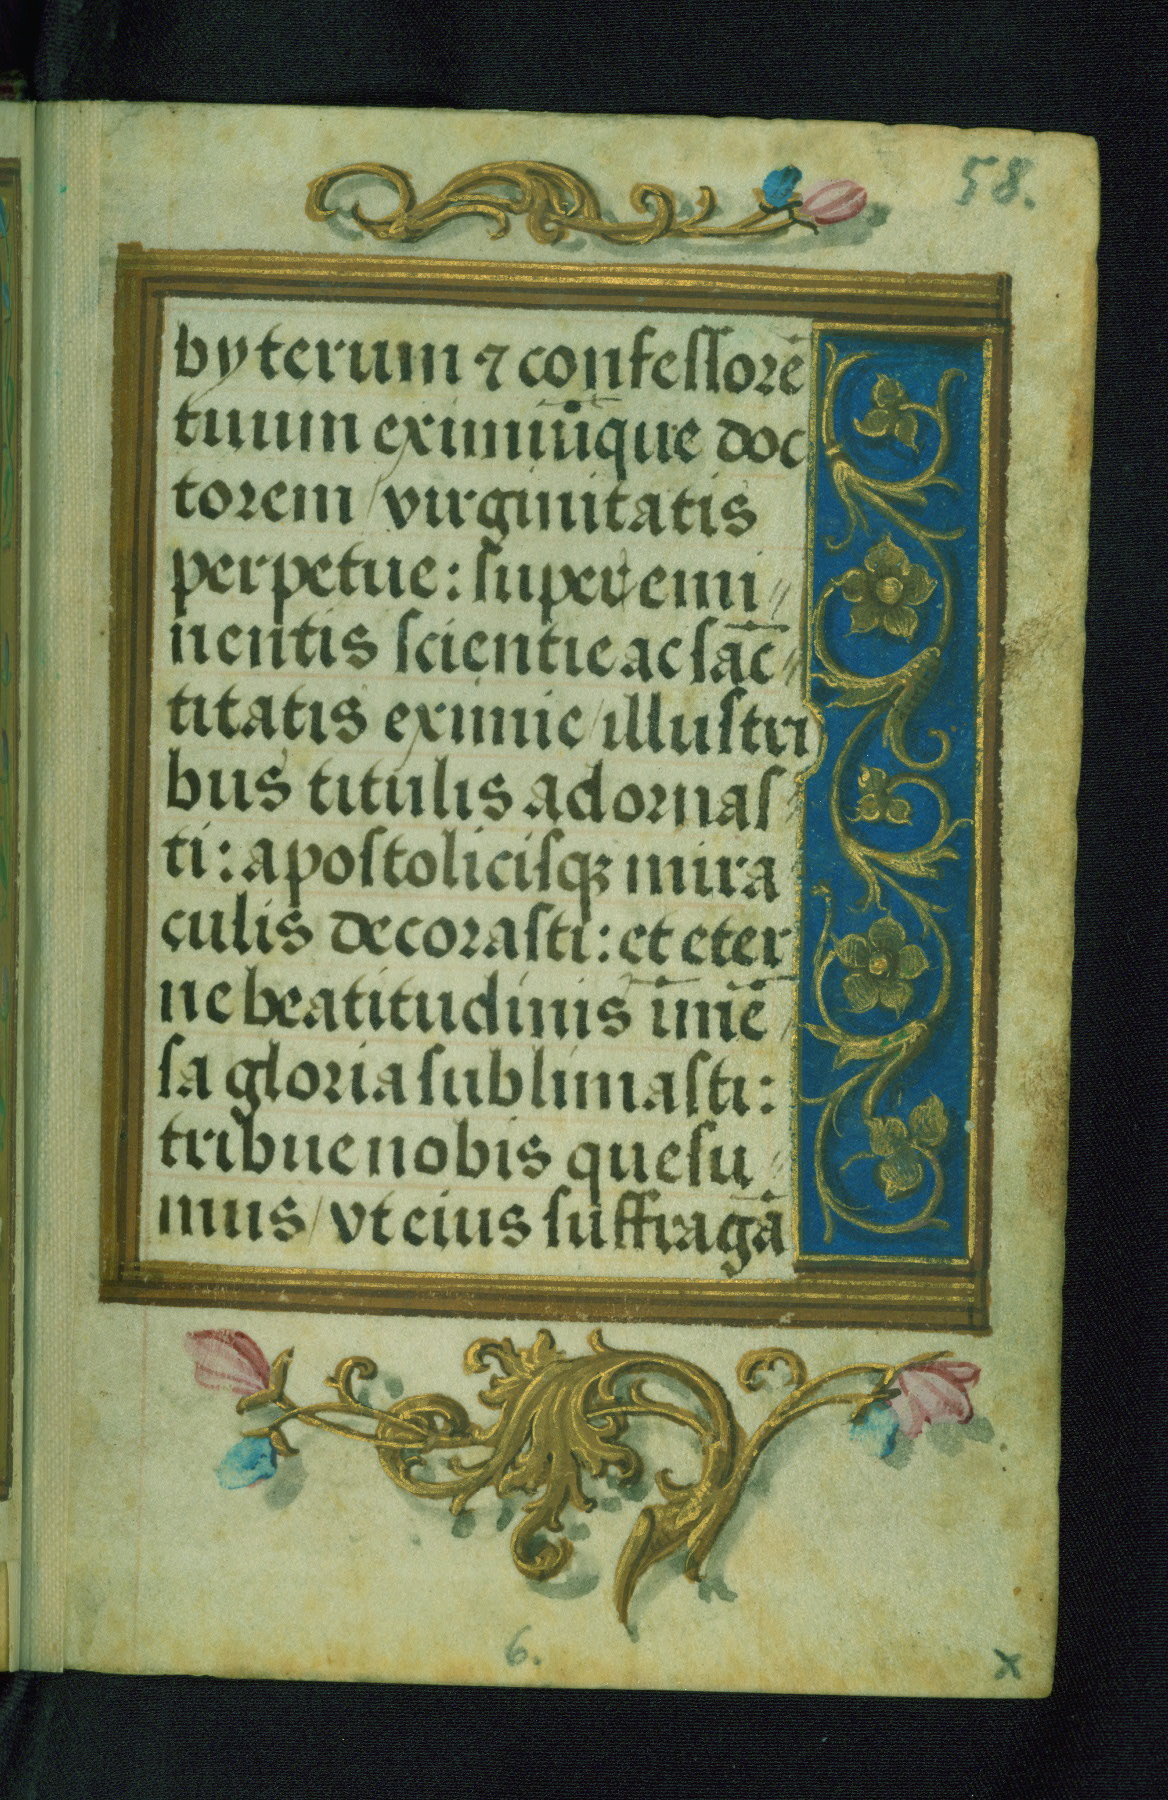 58.
byterum ⁊ confessorē
tuum eximiūque doc
torem / virginitatis
perpetue: superemi〃
nentis scientie ac sāc〃
titatis eximie / illustri
bus titulis adornas
ti: apostolicisqꝫ mira
culis decorasti: et eter
ne beatitudinis īmē
sa gloria sublimasti:
tribue nobis quesu〃
mus / vt eius suffragā
6.
x